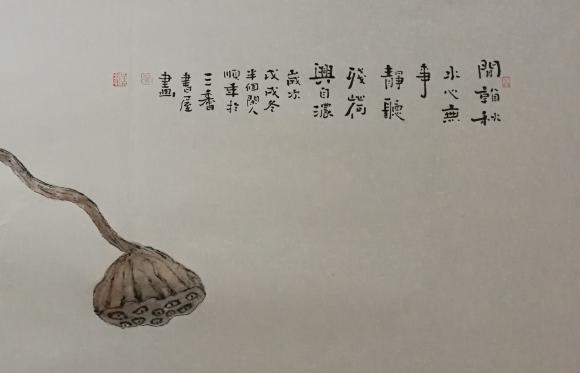 閒看秋
水心無
事
靜聽
殘荷
興自濃
歲次
戊戌冬
半個閑人
順於
三香
書屋
畫